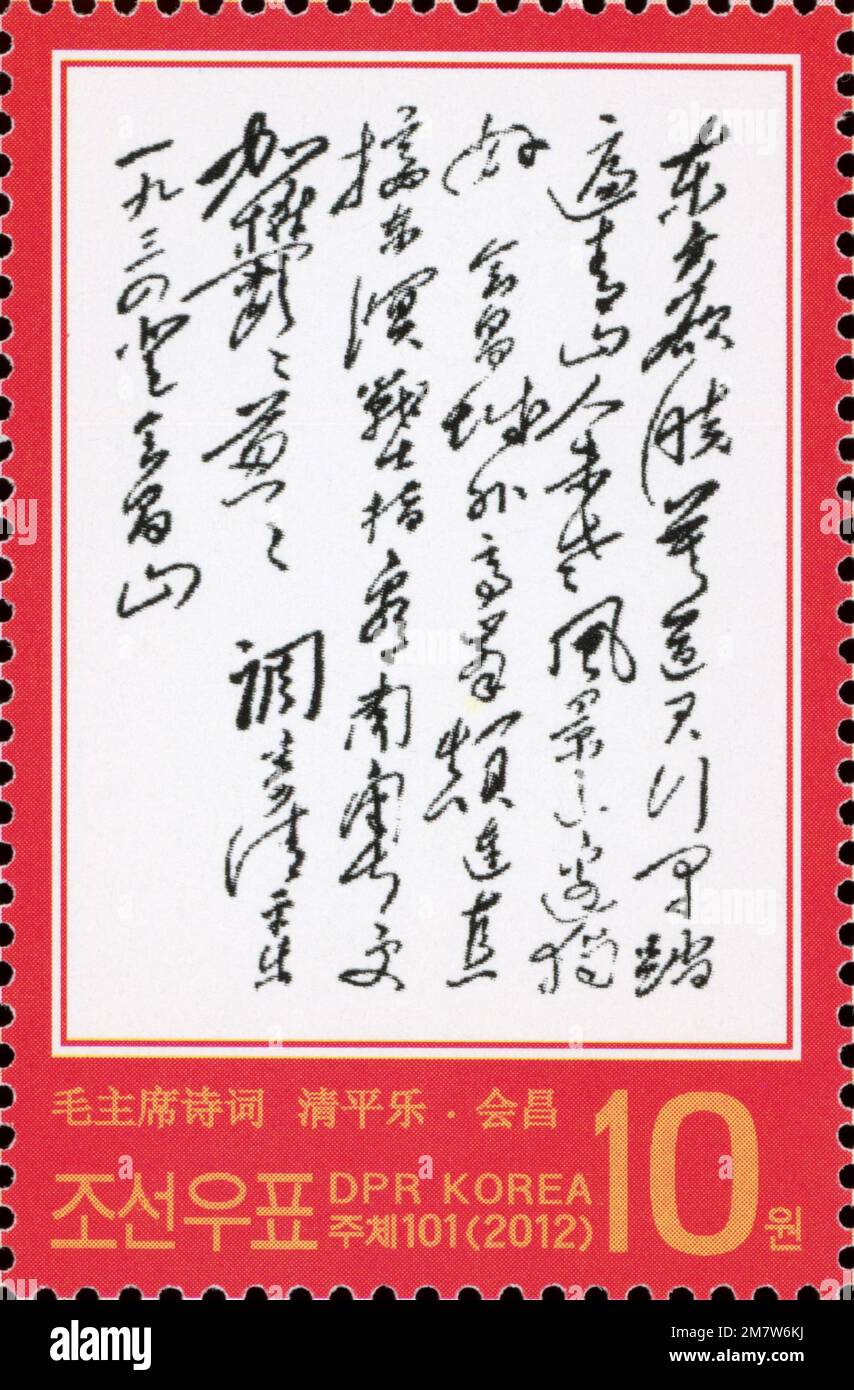 东方欲晓莫道君行早踏
遍青山人未老风景这边独
好 会昌城外高峰颠连直
接东溟战士指看南粤更
加鬱〻葱〻 调寄清平乐
一九三四登会昌山
毛主席诗词 清平乐·会昌
조선우표 DPR KOREA
주체101(2012) 10원
alamy
Image ID: 2M7W6KJ
www.alamy.com